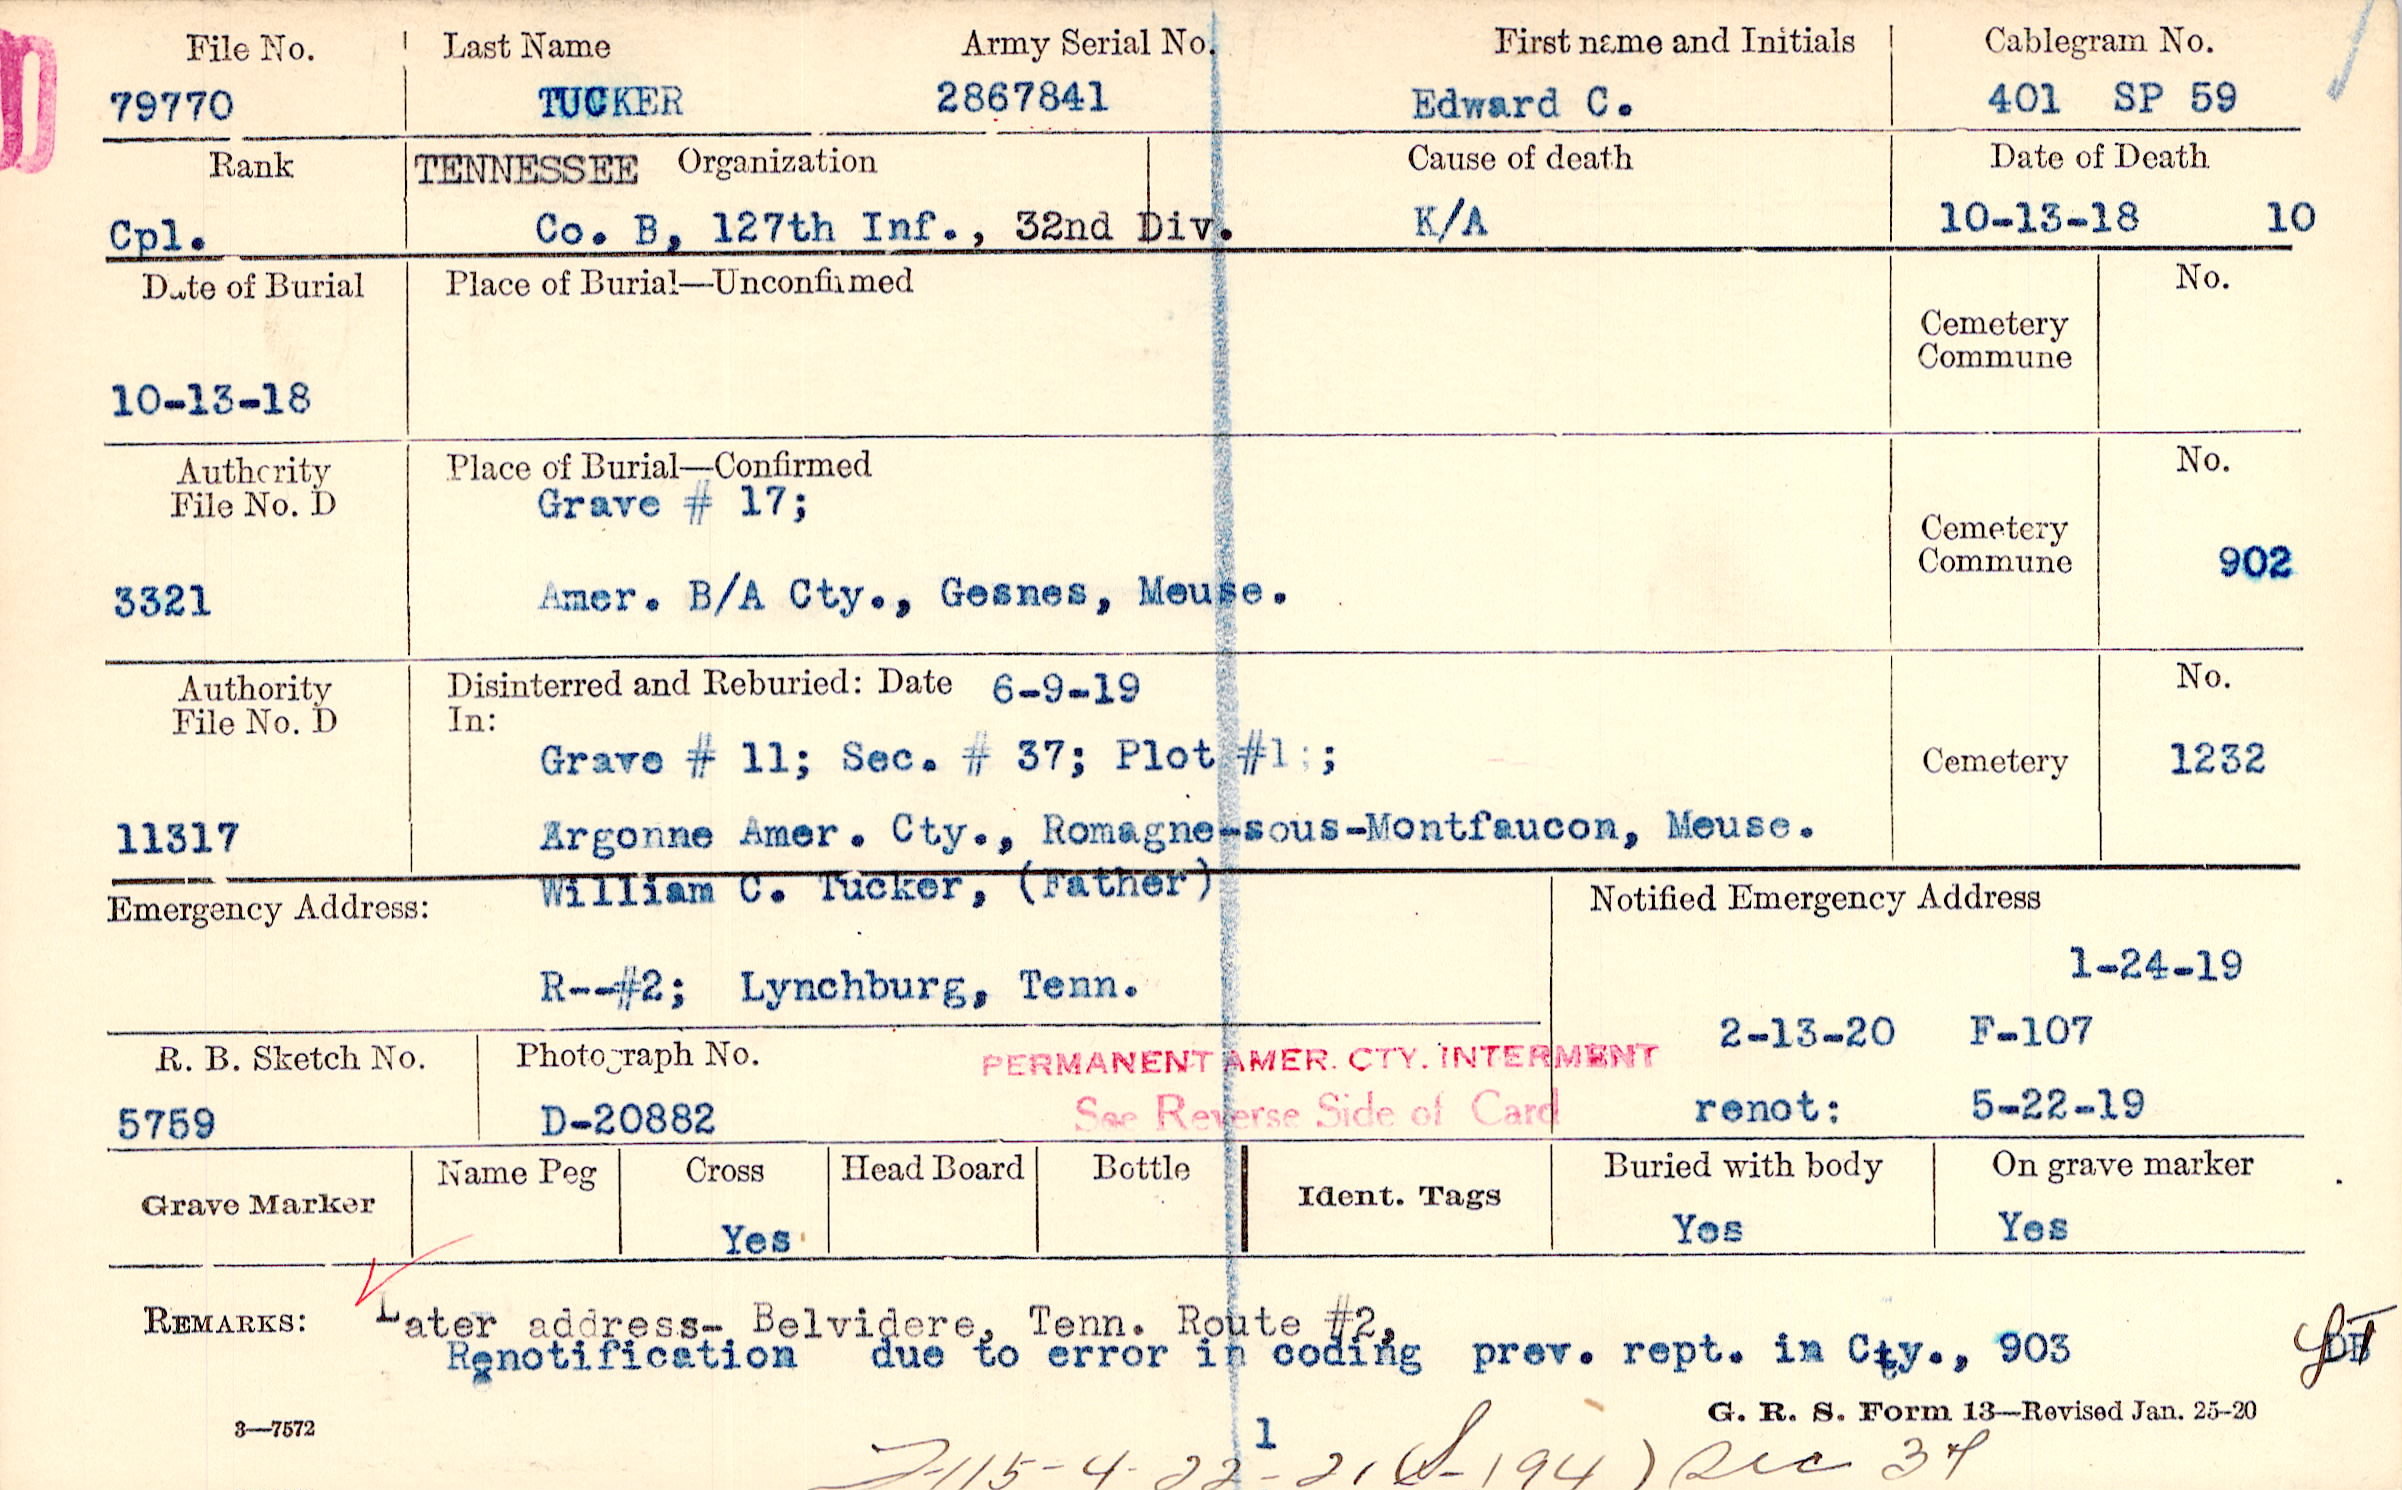 File No. Last Name Army Serial No. First name and Initials Cablegram No.
79770 TUCKER 2867841 Edward C. 401 SP 59
Rank TENNESSEE Organization Cause of death Date of Death
Cpl. Co. B, 127th Inf., 32nd Div. K/A 10-13-18 10
Date of Burial Place of Burial—Unconfirmed No.
Cemetery
Commune
10-13-18
Authority Place of Burial—Confirmed No.
File No. D Grave # 17;
Cemetery
Commune 902
3321 Amer. B/A Cty., Gesnes, Meuse.
Authority Disinterred and Reburied: Date 6-9-19 No.
File No. D In:
Grave # 11; Sec. # 37; Plot #1:; Cemetery 1232
11317 Argonne Amer. Cty., Romagne-sous-Montfaucon, Meuse.
William C. Tucker, (Father)
Emergency Address: Notified Emergency Address
1-24-19
R--#2; Lynchburg, Tenn.
2-13-20 F-107
R. B. Sketch No. Photograph No. PERMANENT AMER. CTY. INTERMENT
5759 D-20882 See Reverse Side of Card renot: 5-22-19
Grave Marker Name Peg Cross Head Board Bottle Ident. Tags Buried with body On grave marker
Yes Yes Yes
REMARKS: Later address- Belvidere, Tenn. Route #2,
Renotification due to error in coding prev. rept. in Cty., 903
3—7572 1 G. R. S. Form 13—Revised Jan. 25-20
115-4-22-21 194) Sec 37